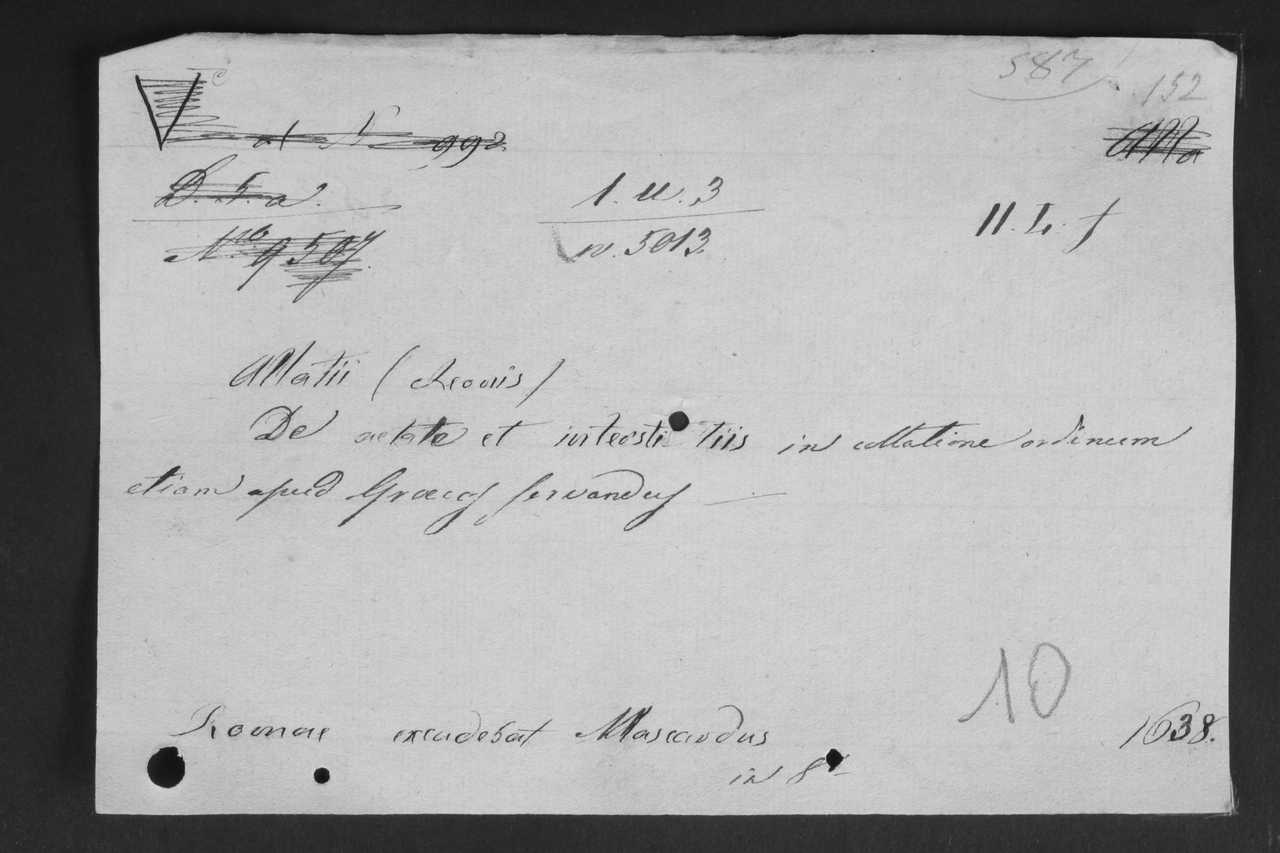 587 152
992
D. 5. a.
1. u. 3
N.ro 9507.
n. 5013
II. L. f
Allatii (Leonis)
De aetate et interstitiis in collatione ordinum
etiam apud Graecos servandis
10
Romae excudebat Mascardus 1638.
in 8º